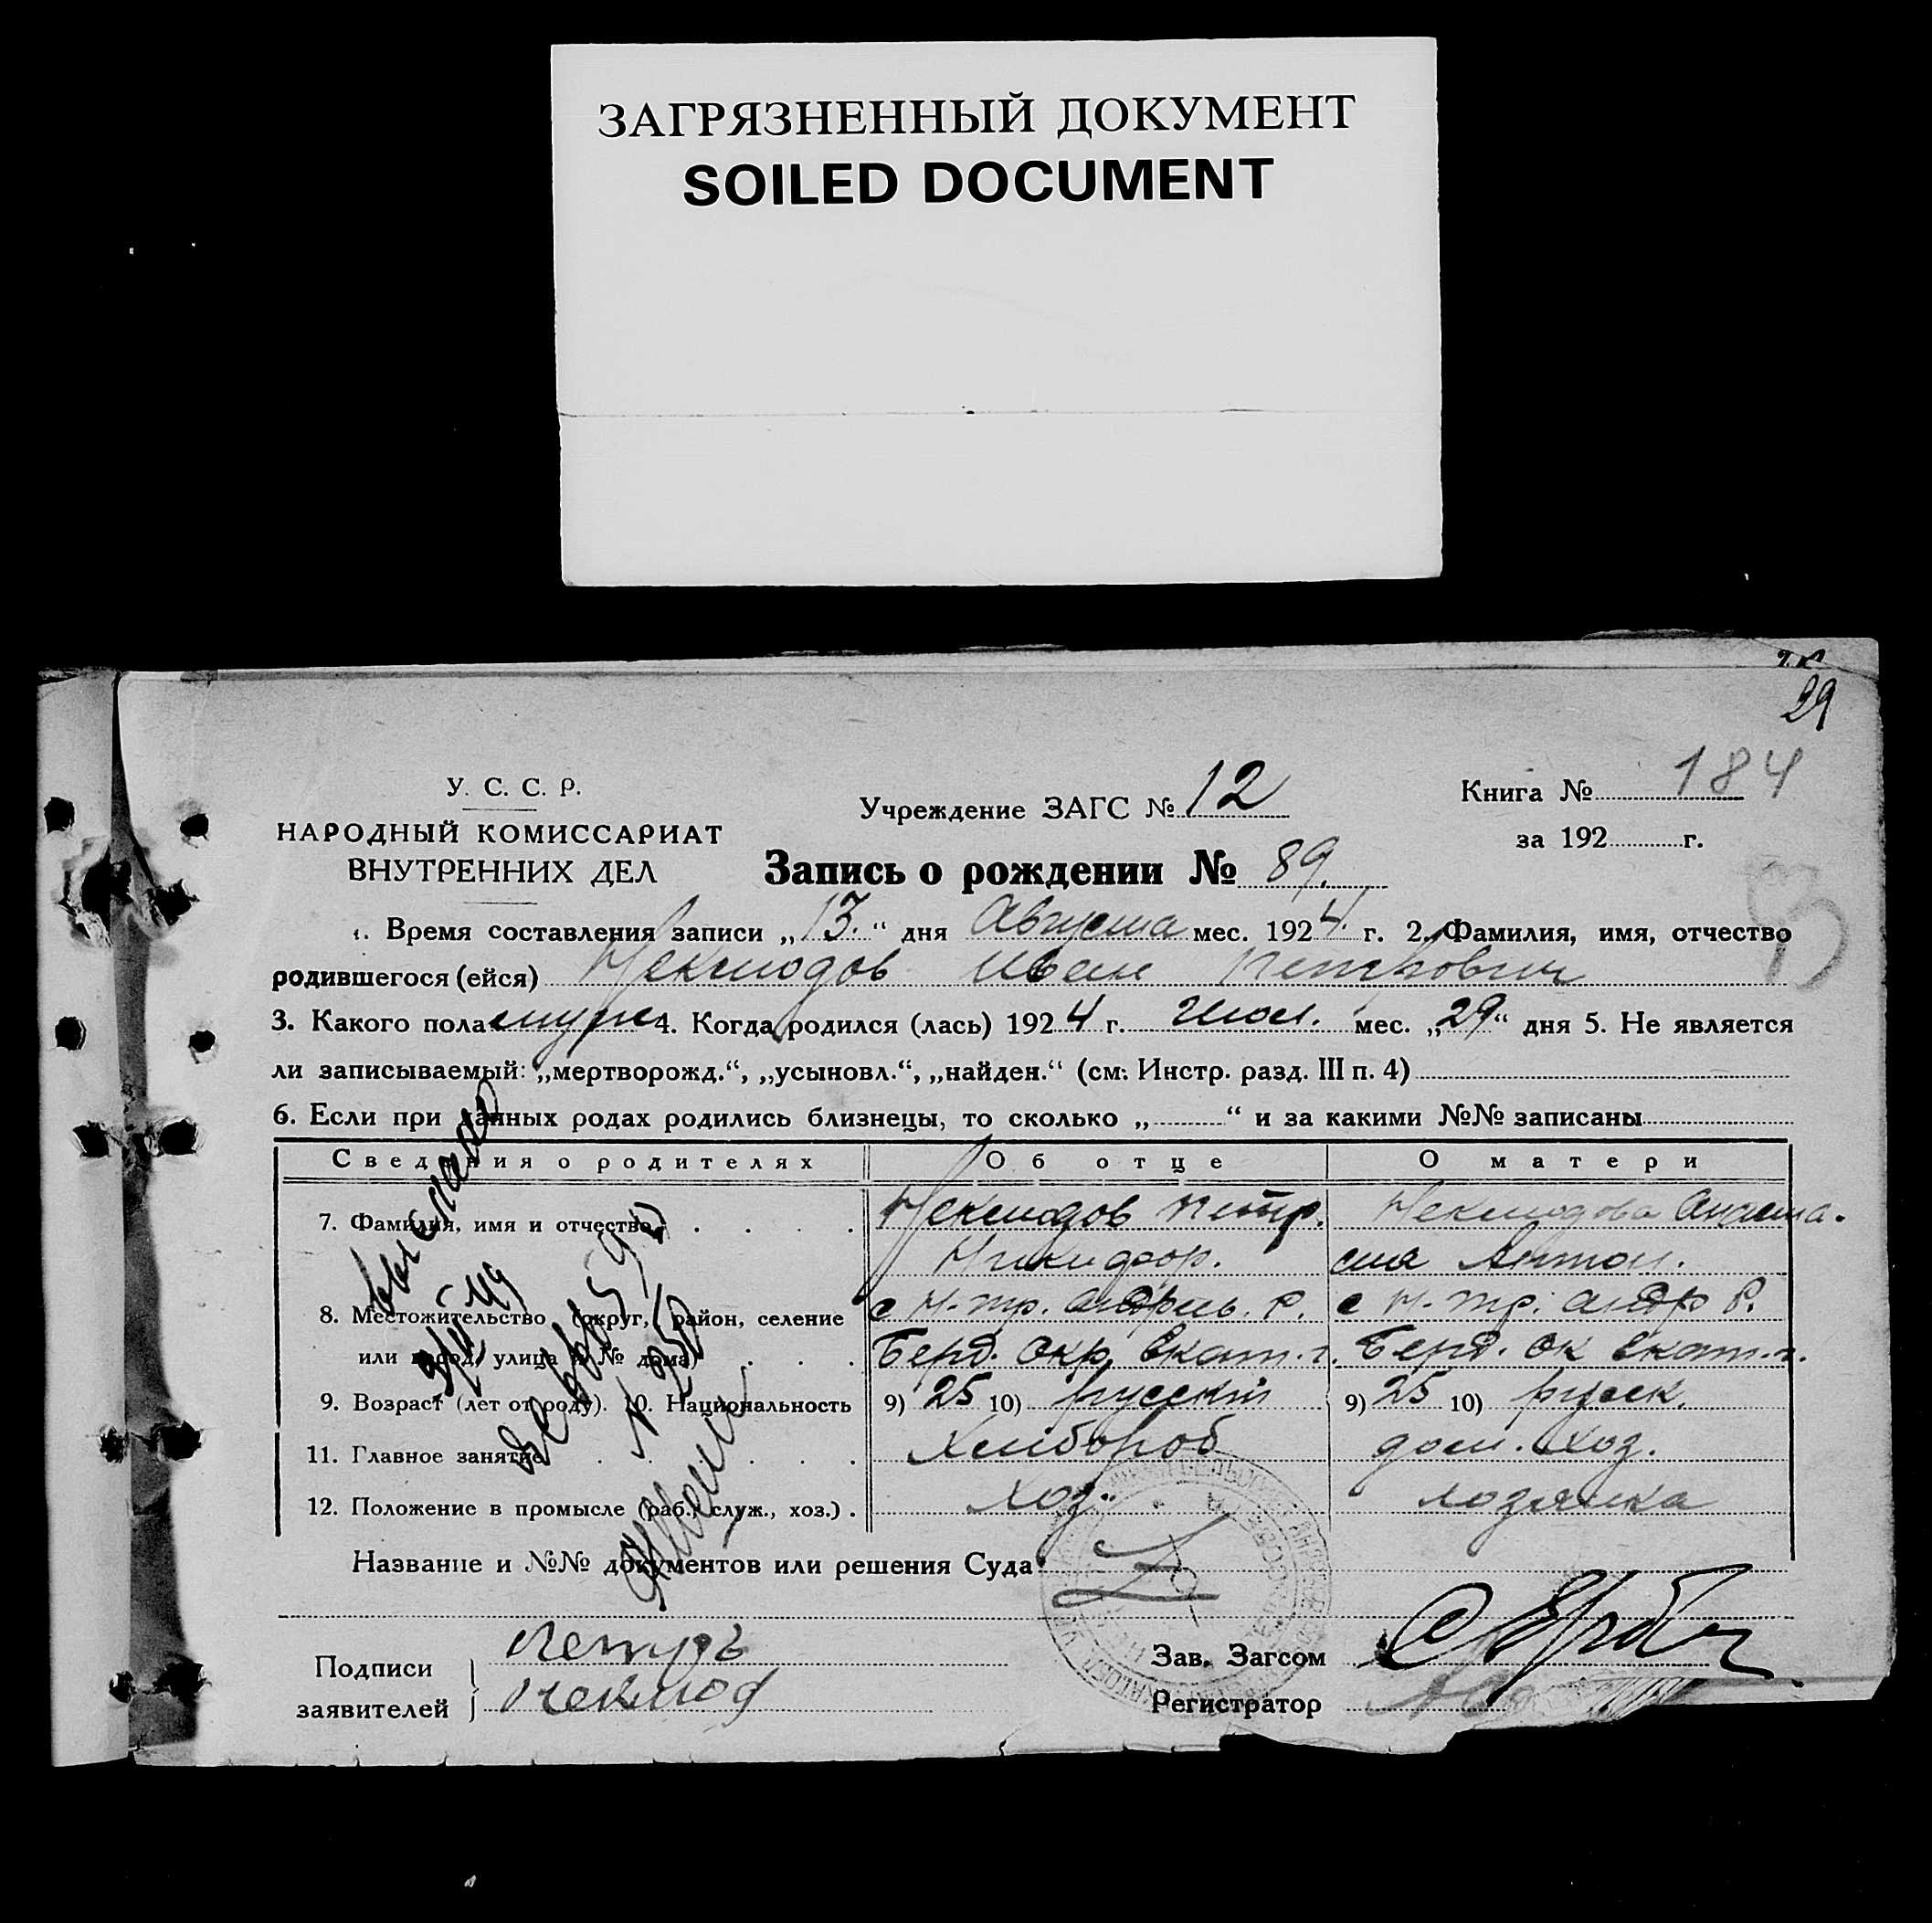 ЗАГРЯЗНЕННЫЙ ДОКУМЕНТ
SOILED DOCUMENT
29
У. С. С. Р.
НАРОДНЫЙ КОМИССАРИАТ
ВНУТРЕННИХ ДЕЛ
Учреждение ЗАГС № 12
Книга № 184
за 192 г.
Запись о рождении № 89.
1. Время составления записи „13.“ дня Августа мес. 1924. г. 2. Фамилия, имя, отчество
родившегося (ейся) Неклюдов Иван Петрович
3. Какого пола муж 4. Когда родился (лась) 1924 г. Июл. мес. „29“ дня 5. Не является
ли записываемый: „мертворожд.“, „усыновл.“, „найден.“ (см. Инстр. разд. III п. 4)
6. Если при данных родах родились близнецы, то сколько „ “ и за какими №№ записаны
Сведения о родителях Об отце О матери
7. Фамилия, имя и отчество Неклюдов Петр. Неклюдова Анаста-
Никифор. сия Антон.
8. Местожительство (округ, район, селение с Н-тр. Андреев. Р. с Н-тр. Андр Р.
или город, улица и № дома) Берд. Окр. Екат. г. Берд. Ок Екат. г.
9. Возраст (лет от роду). 10. Национальность 9) 25 10) русский 9) 25 10) русск.
11. Главное занятие Хлибороб дом. Хоз.
12. Положение в промысле (раб., служ., хоз.) Хоз. хозяйка
выслано
Название и №№ документов или решения Суда
Подписи
заявителей
Петръ
Неклюд
Зав. Загсом
Регистратор